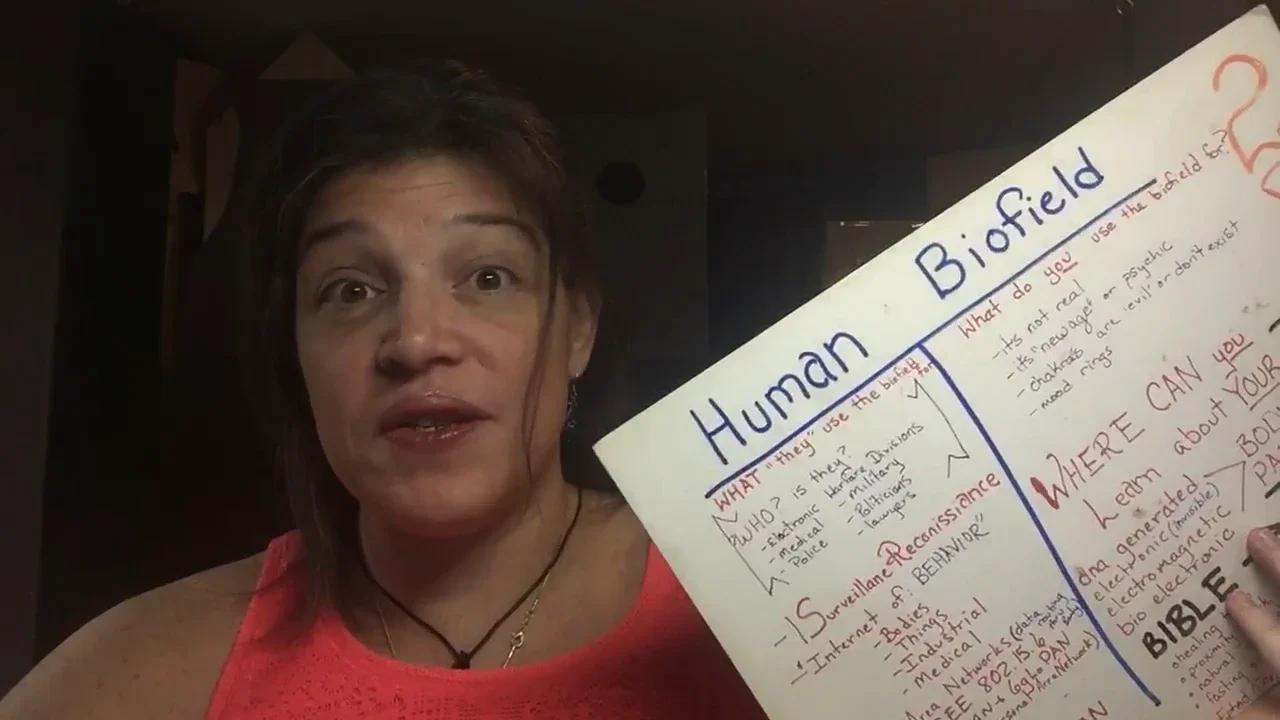 Human Biofield
WHAT "they" use the biofield for
WHO? is they?
- Electronic Warfare Divisions
- medical - Military
- Police - Politicians
- lawyers
- Surveillane Reconissiance
BEHAVIOR"
Internet of:
- Bodies
- Things
- Industrial
- Medical
Area Networks (data routing
EEE 802.15.6
6g to PAN
What do you use the biofield for?
- it's not real
- its "new age" or psychic
- chakras are 'evil' or don't exist
- mood rings
WHERE CAN you
Learn about YOUR
dna generated
electronic (invisible)
electromagnetic
bio electronic
BIBLE
healing
proximity
natural
fasting